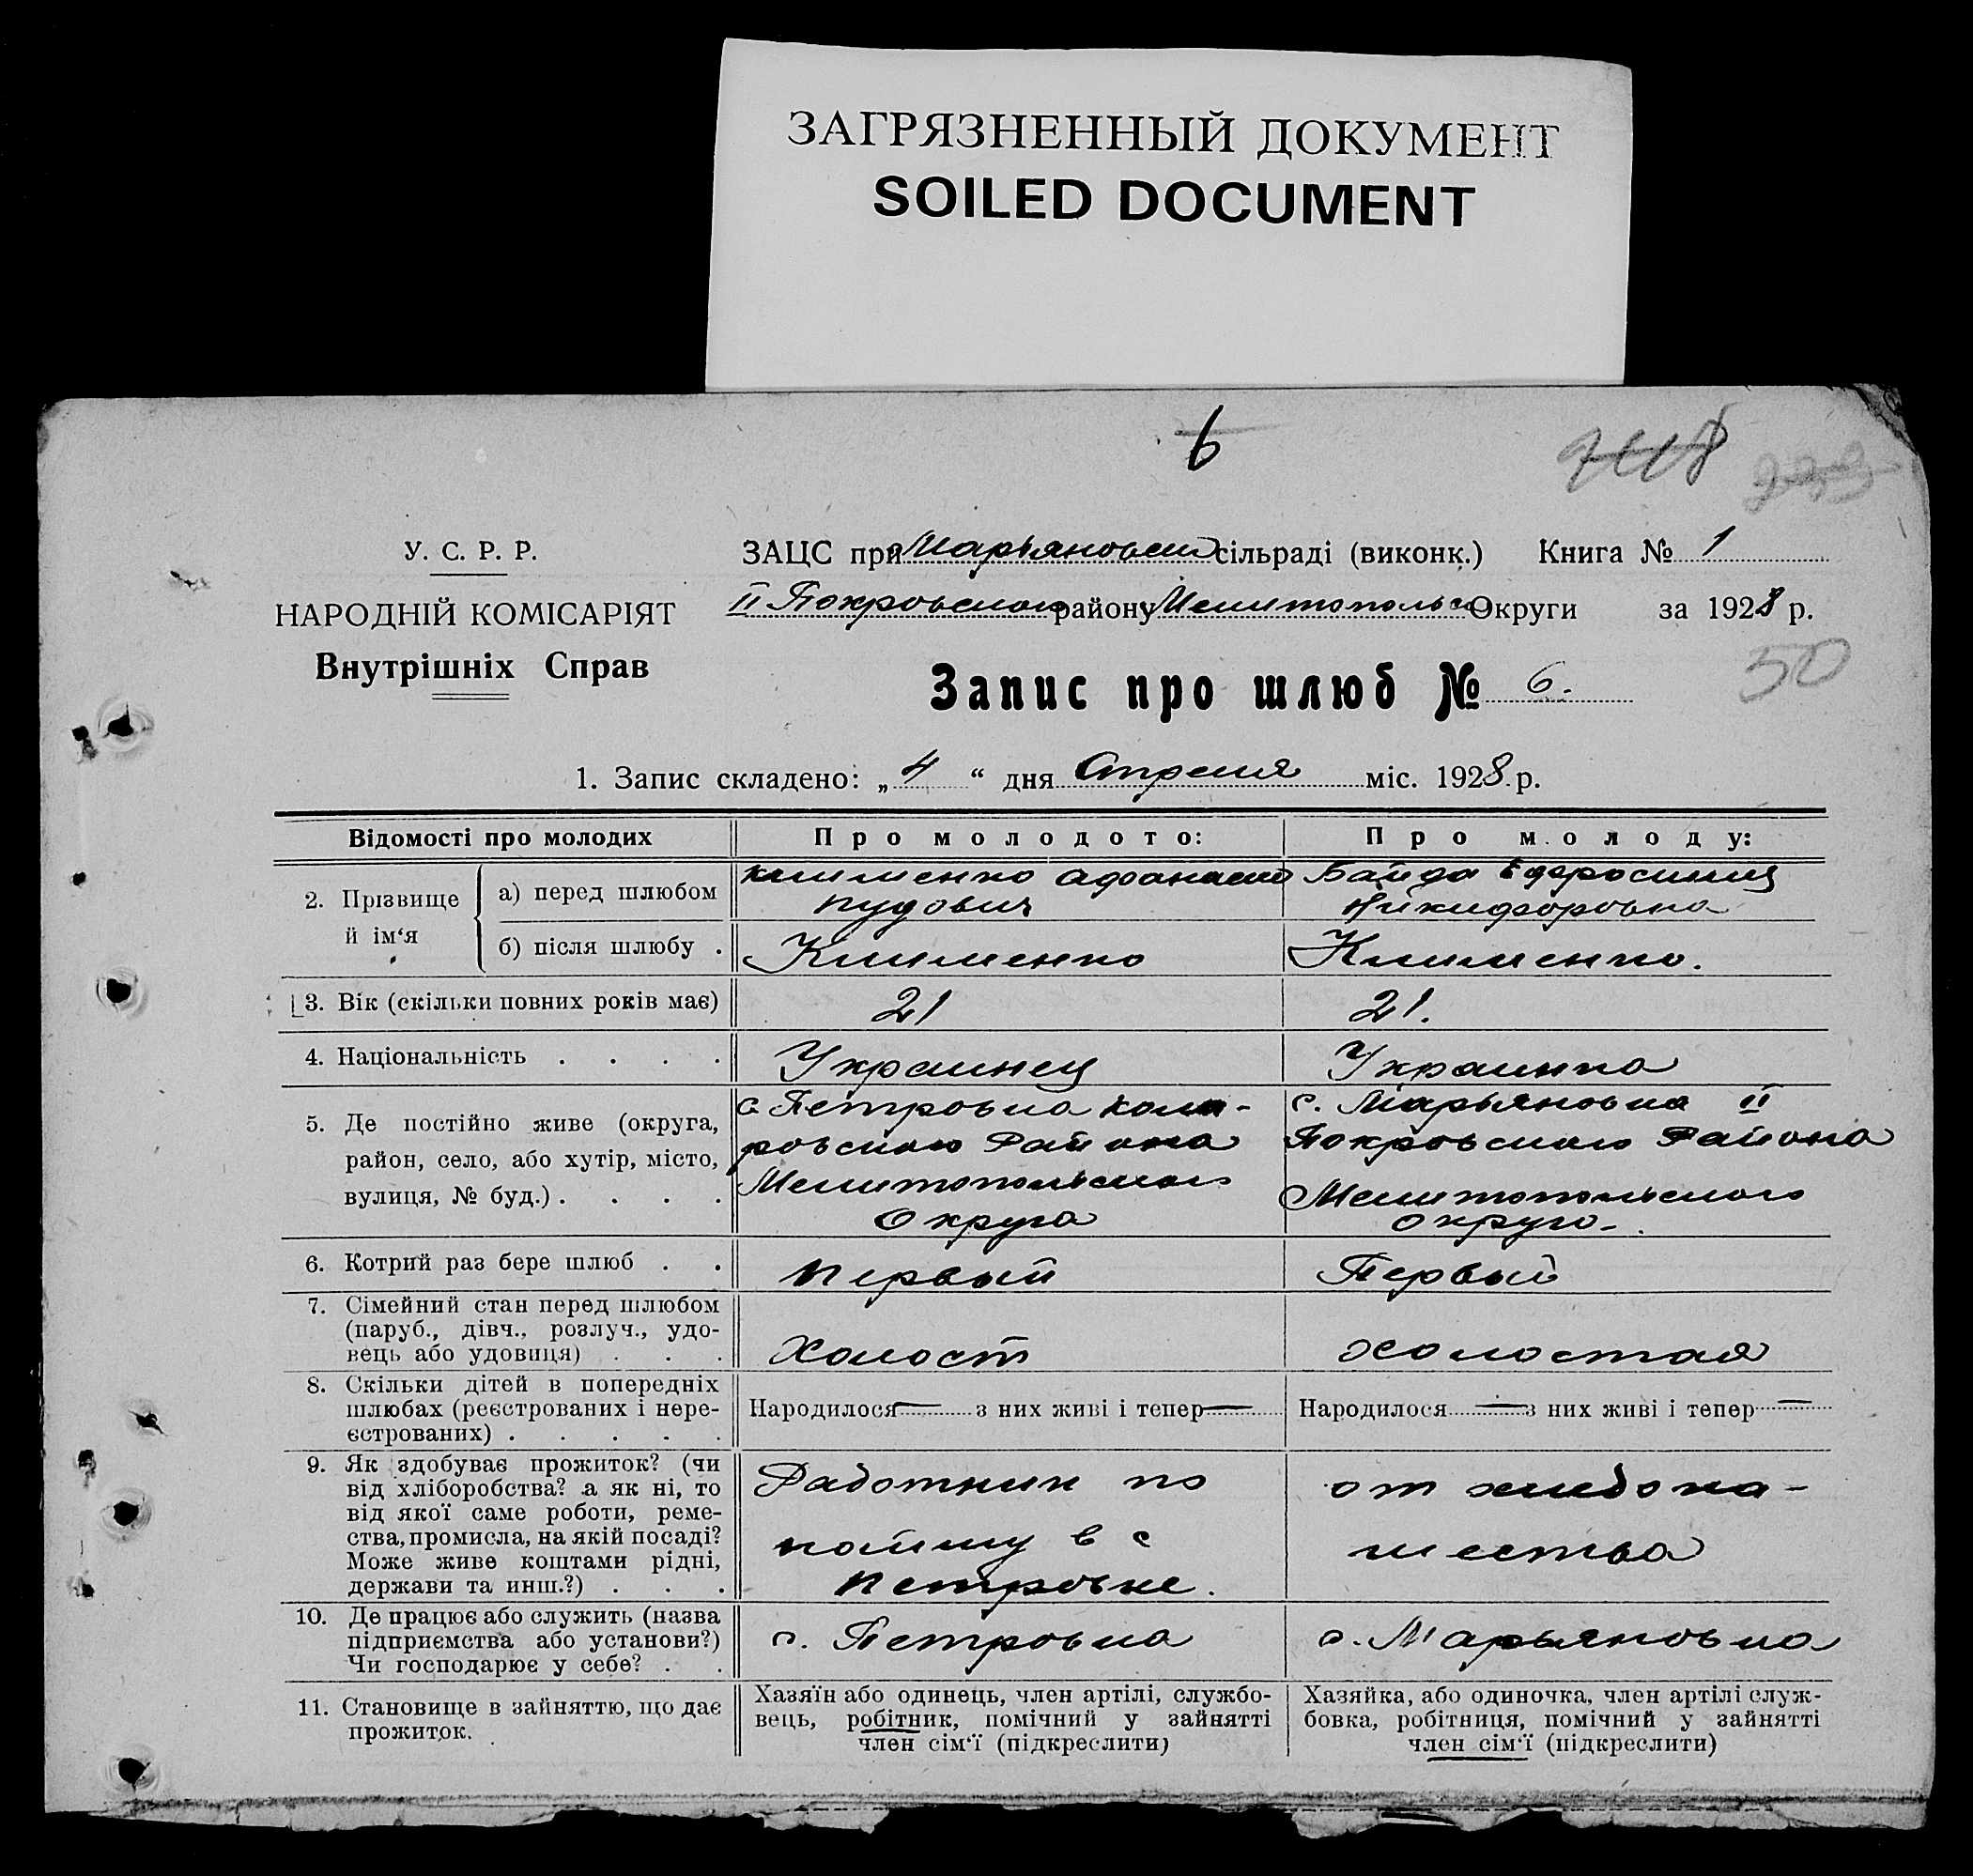 ЗАГРЯЗНЕННЫЙ ДОКУМЕНТ
SOILED DOCUMENT
6
50
У. С. Р. Р.
НАРОДНІЙ КОМІСАРІЯТ
Внутрішніх Справ
ЗАЦС при Марьяновском сільраді (виконк.) Книга № 1
II Покровского району Мелитопольск Округи за 1928 р.
Запис про шлюб № 6.
1. Запис складено: „ 4 “ дня Апреля міс. 1928 р.
Відомості про молодих
Про молодого:
Про молоду:
2. Прізвище й ім‘я
а) перед шлюбом
Клименко Афанасий
пудович
Байда Ефросиния
Никифоровна
б) після шлюбу .
Клименко
Клименко.
3. Вік (скільки повних років має)
21
21.
4. Національність . . . .
Украинец
Украинка
5. Де постійно живе (округа,
район, село, або хутір, місто,
вулиця, № буд.) . . . .
с Петровка
ровского Района
Мелитопольского
Округа
с. Марьяновка II
Покровского Района
Мелитопольского
округа.
6. Котрий раз бере шлюб . .
первый
Первый
7. Сімейний стан перед шлюбом
(паруб., дівч., розлуч., удо-
вець або удовиця) . . .
Холост
холостая
8. Скільки дітей в попередніх
шлюбах (реєстрованих і нере-
єстрованих) . . . . .
Народилося — з них живі і тепер —
Народилося — з них живі і тепер —
9. Як здобуває прожиток? (чи
від хліборобства? а як ні, то
від якої саме роботи, реме-
ства, промисла, на якій посаді?
Може живе коштами рідні,
держави та инш.?) . . .
Работник по
найму в с
петровке.
от хлебопа-
шества
10. Де працює або служить (назва
підприємства або установи?)
Чи господарює у себе? . .
с. Петровка
с. Марьяновка
11. Становище в зайняттю, що дає
прожиток.
Хазяїн або одинець, член артілі, службо-
вець, робітник, помічний у зайнятті
член сім‘ї (підкреслити)
Хазяйка, або одиночка, член артілі служ-
бовка, робітниця, помічний у зайнятті
член сім‘ї (підкреслити)